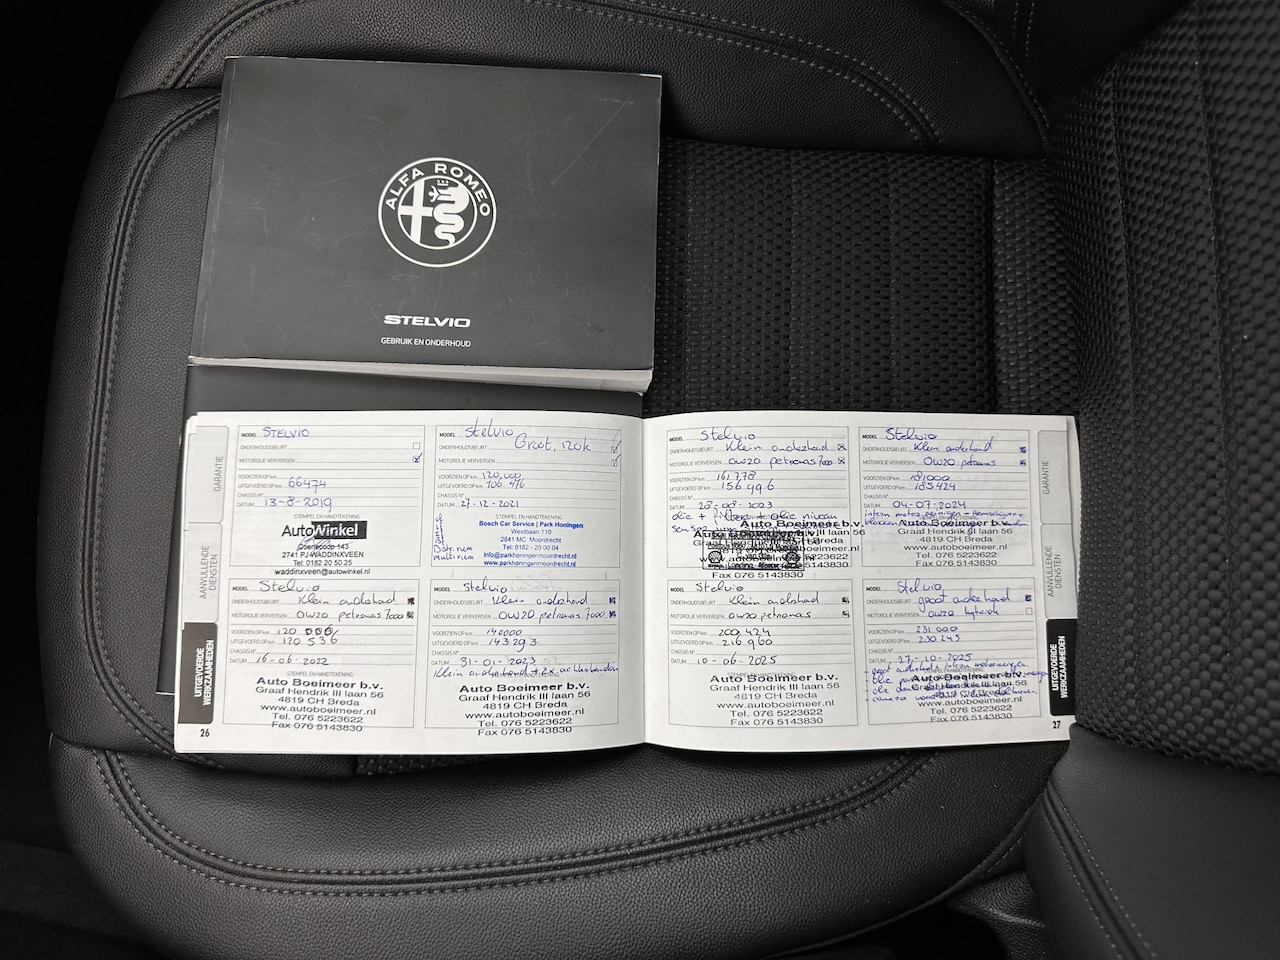 ALFA ROMEO
STELVIO
GEBRUIK EN ONDERHOUD
GARANTIE
AANVULLENDE DIENSTEN
UITGEVOERDE WERKZAAMHEDEN
MODEL STELVIO
ONDERHOUDSBEURT
MOTOROLIE VERVERSEN
VOORZIEN OP km
UITGEVOERD OP km 66474
CHASSIS N°
DATUM 13-8-2019
STEMPEL EN HANDTEKENING
AutoWinkel
Coenecoop 143
2741 PJ WADDINXVEEN
Tel: 0182 20 50 25
waddinxveen@autowinkel.nl
MODEL Stelvio
ONDERHOUDSBEURT Groot, 120k
MOTOROLIE VERVERSEN
VOORZIEN OP km 120,000
UITGEVOERD OP km 106.496
CHASSIS N°
DATUM 27-12-2021
STEMPEL EN HANDTEKENING
Bosch Car Service | Park Honingen
Westbaan 110
2841 MC Moordrecht
Tel: 0182 - 20 00 04
info@parkhoningenmoordrecht.nl
www.parkhoningenmoordrecht.nl
Distr. riem
multiriem
MODEL Stelvio
ONDERHOUDSBEURT Klein onderhoud
MOTOROLIE VERVERSEN 0W20 petronas 7000
VOORZIEN OP km 120
UITGEVOERD OP km 120 536
CHASSIS N°
DATUM 16-06-2022
STEMPEL EN HANDTEKENING
Auto Boeimeer b.v.
Graaf Hendrik III laan 56
4819 CH Breda
www.autoboeimeer.nl
Tel. 076 5223622
Fax 076 5143830
MODEL Stelvio
ONDERHOUDSBEURT Klein onderhoud
MOTOROLIE VERVERSEN 0W20 petronas 7000
VOORZIEN OP km 140000
UITGEVOERD OP km 143.293
CHASSIS N°
DATUM 31-01-2023
Klein onderhoud + 2x achterbanden
Auto Boeimeer b.v.
Graaf Hendrik III laan 56
4819 CH Breda
www.autoboeimeer.nl
Tel. 076 5223622
Fax 076 5143830
26
MODEL Stelvio
ONDERHOUDSBEURT Klein onderhoud
MOTOROLIE VERVERSEN 0W20 petronas 7000
VOORZIEN OP km 161778
UITGEVOERD OP km 156996
CHASSIS N°
DATUM 28-08-2023
olie + filter + olie niveau
sensor
Auto Boeimeer b.v.
Graaf Hendrik III laan 56
Fax 076 5143830
MODEL Stelvio
ONDERHOUDSBEURT Klein onderhoud
MOTOROLIE VERVERSEN 0W20 petronas
VOORZIEN OP km 181000
UITGEVOERD OP km 185424
CHASSIS N°
DATUM 04-07-2024
intern motor reinigen
Auto Boeimeer b.v.
Graaf Hendrik III laan 56
4819 CH Breda
www.autoboeimeer.nl
Tel. 076 5223622
Fax 076 5143830
MODEL Stelvio
ONDERHOUDSBEURT Klein onderhoud
MOTOROLIE VERVERSEN 0W20 petronas
VOORZIEN OP km 200.424
UITGEVOERD OP km 216960
CHASSIS N°
DATUM 10-06-2025
STEMPEL EN HANDTEKENING
Auto Boeimeer b.v.
Graaf Hendrik III laan 56
4819 CH Breda
www.autoboeimeer.nl
Tel. 076 5223622
Fax 076 5143830
MODEL Stelvio
ONDERHOUDSBEURT groot onderhoud
MOTOROLIE VERVERSEN 0W20 hybride
VOORZIEN OP km 231000
UITGEVOERD OP km 230245
CHASSIS N°
DATUM 27-10-2025
Auto Boeimeer b.v.
Graaf Hendrik III laan 56
4819 CH Breda
www.autoboeimeer.nl
Tel. 076 5223622
Fax 076 5143830
GARANTIE
AANVULLENDE DIENSTEN
UITGEVOERDE WERKZAAMHEDEN
27